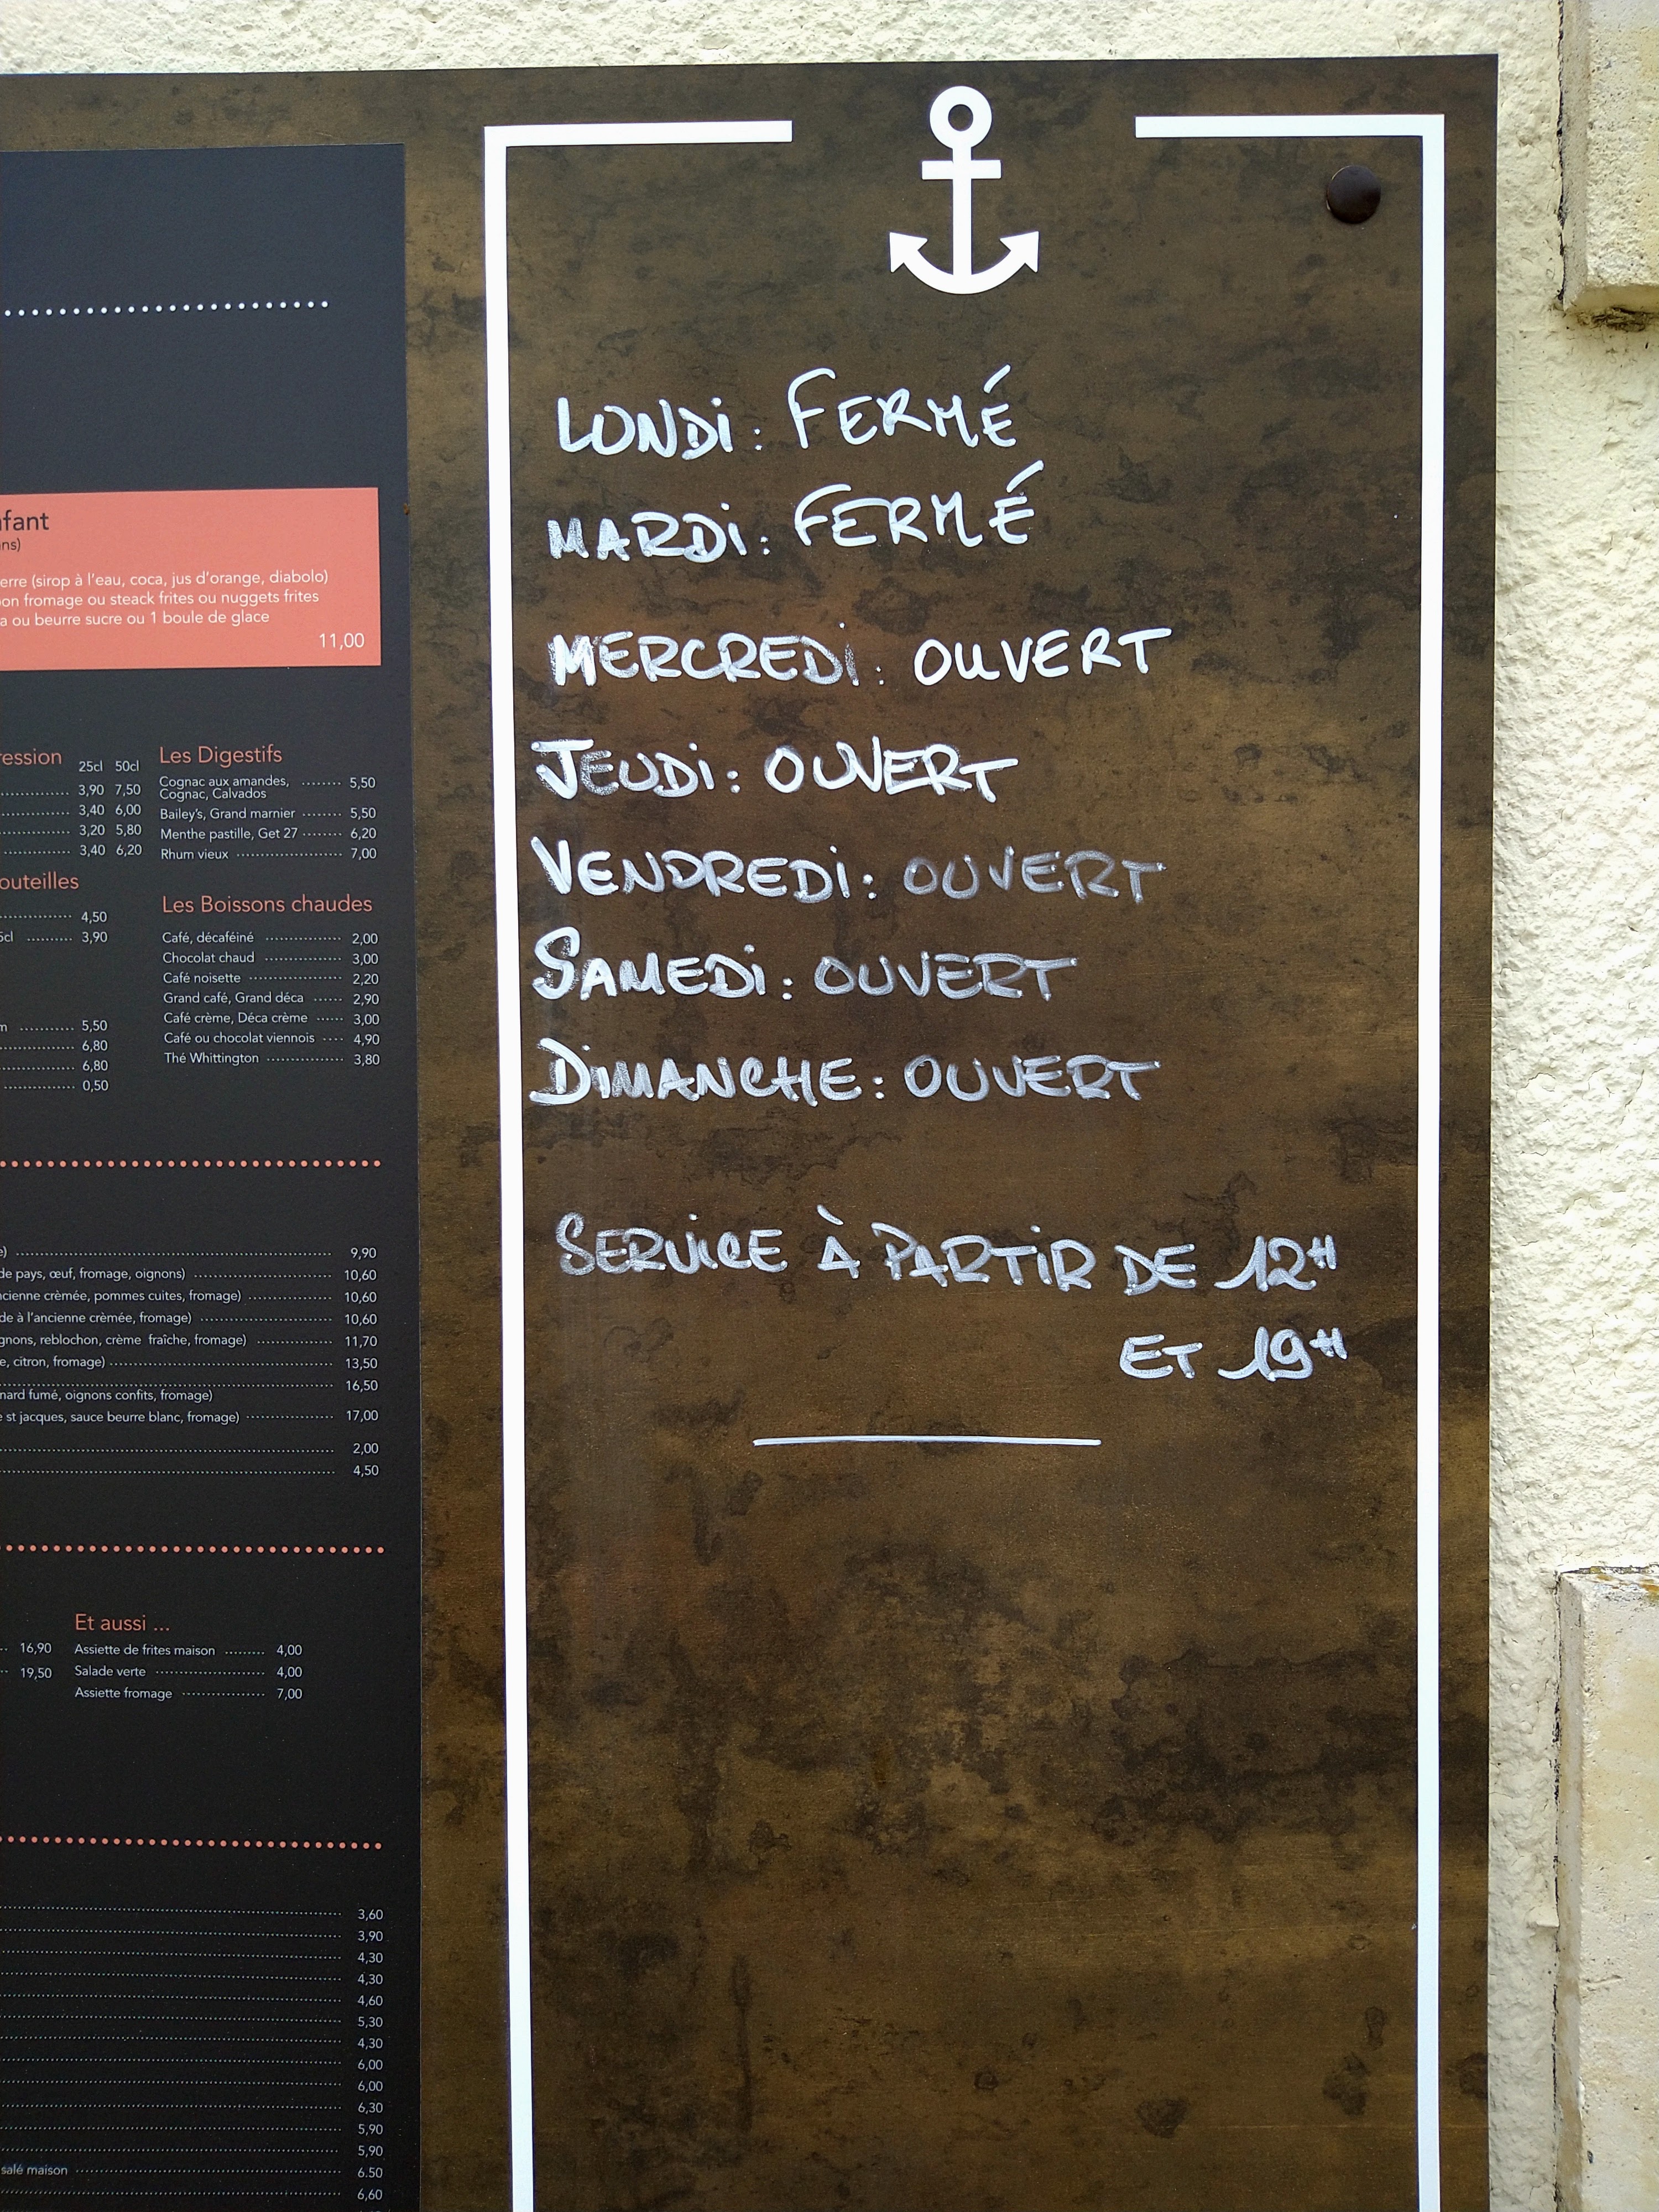 LUNDI : FERMÉ
MARDI : FERMÉ
MERCREDI : OUVERT
JEUDI : OUVERT
VENDREDI : OUVERT
SAMEDI : OUVERT
DIMANCHE : OUVERT
SERVICE À PARTIR DE 12H
ET 19H
nfant
ans)
erre (sirop à l'eau, coca, jus d'orange, diabolo)
on fromage ou steack frites ou nuggets frites
a ou beurre sucre ou 1 boule de glace
11,00
ression 25cl 50cl
3,90 7,50
3,40 6,00
3,20 5,80
3,40 6,20
outeilles
4,50
5cl 3,90
m 5,50
6,80
6,80
0,50
Les Digestifs
Cognac aux amandes, 5,50
Cognac, Calvados
Bailey's, Grand marnier 5,50
Menthe pastille, Get 27 6,20
Rhum vieux 7,00
Les Boissons chaudes
Café, décaféiné 2,00
Chocolat chaud 3,00
Café noisette 2,20
Grand café, Grand déca 2,90
Café crème, Déca crème 3,00
Café ou chocolat viennois 4,90
Thé Whittington 3,80
e) 9,90
de pays, œuf, fromage, oignons) 10,60
ncienne crèmée, pommes cuites, fromage) 10,60
de à l'ancienne crèmée, fromage) 10,60
gnons, reblochon, crème fraîche, fromage) 11,70
e, citron, fromage) 13,50
16,50
nard fumé, oignons confits, fromage)
e st jacques, sauce beurre blanc, fromage) 17,00
2,00
4,50
16,90
19,50
Et aussi ...
Assiette de frites maison 4,00
Salade verte 4,00
Assiette fromage 7,00
3,60
3,90
4,30
4,30
4,60
5,30
4,30
6,00
6,00
6,30
5,90
5,90
salé maison 6.50
6,60